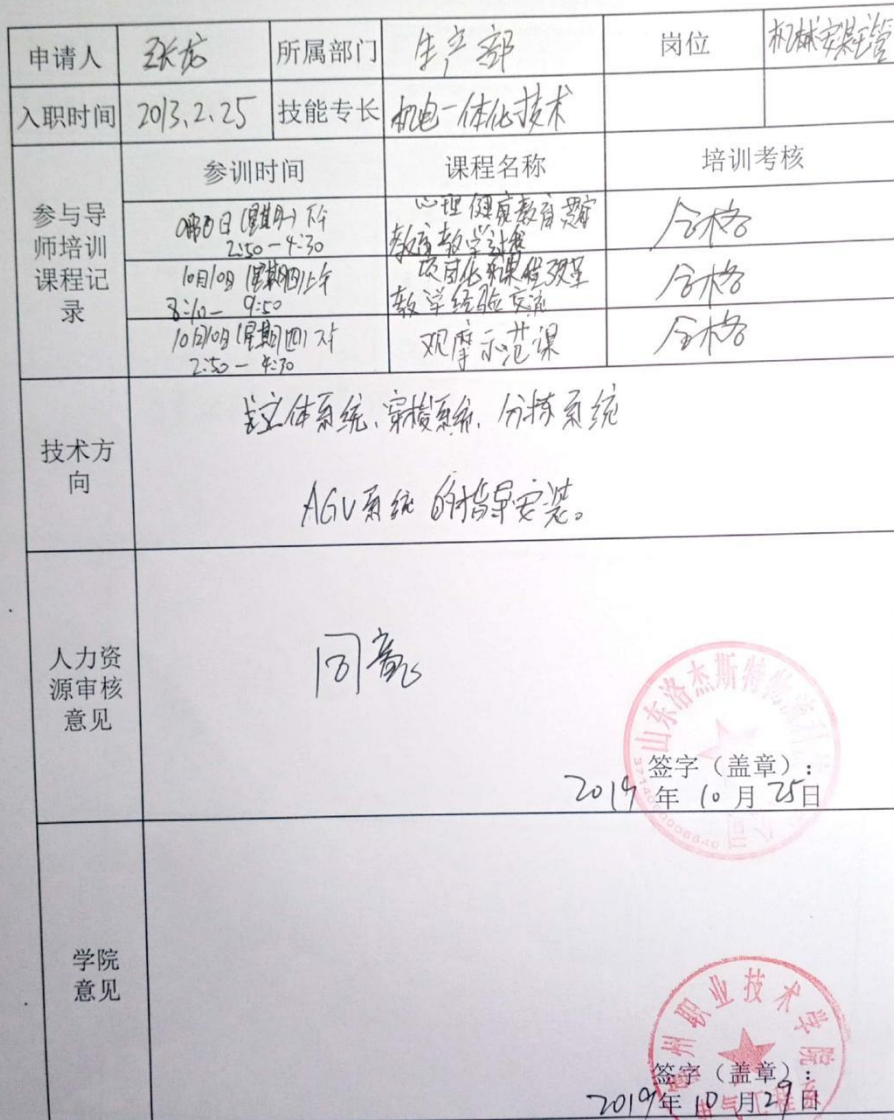 申请人 张龙 所属部门 生产部 岗位 机械安装主管
入职时间 2013.2.25 技能专长 机电一体化技术
参与导师培训课程记录 参训时间 课程名称 培训考核
下午 2:50-4:30 心理健康教育 教育教学 合格
10月10日(星期四)上午 8:10-9:50 项目化课程 教学经验交流 合格
10月10日(星期四)下午 2:50-4:30 观摩示范课 合格
技术方向
立体系统、穿梭系统、分拣系统
AGV系统的指导安装。
人力资源审核意见
同意
山东洛杰斯特物流科技
签字(盖章):
2019年10月25日
学院意见
州职业技术学院
签字(盖章):
2019年10月29日